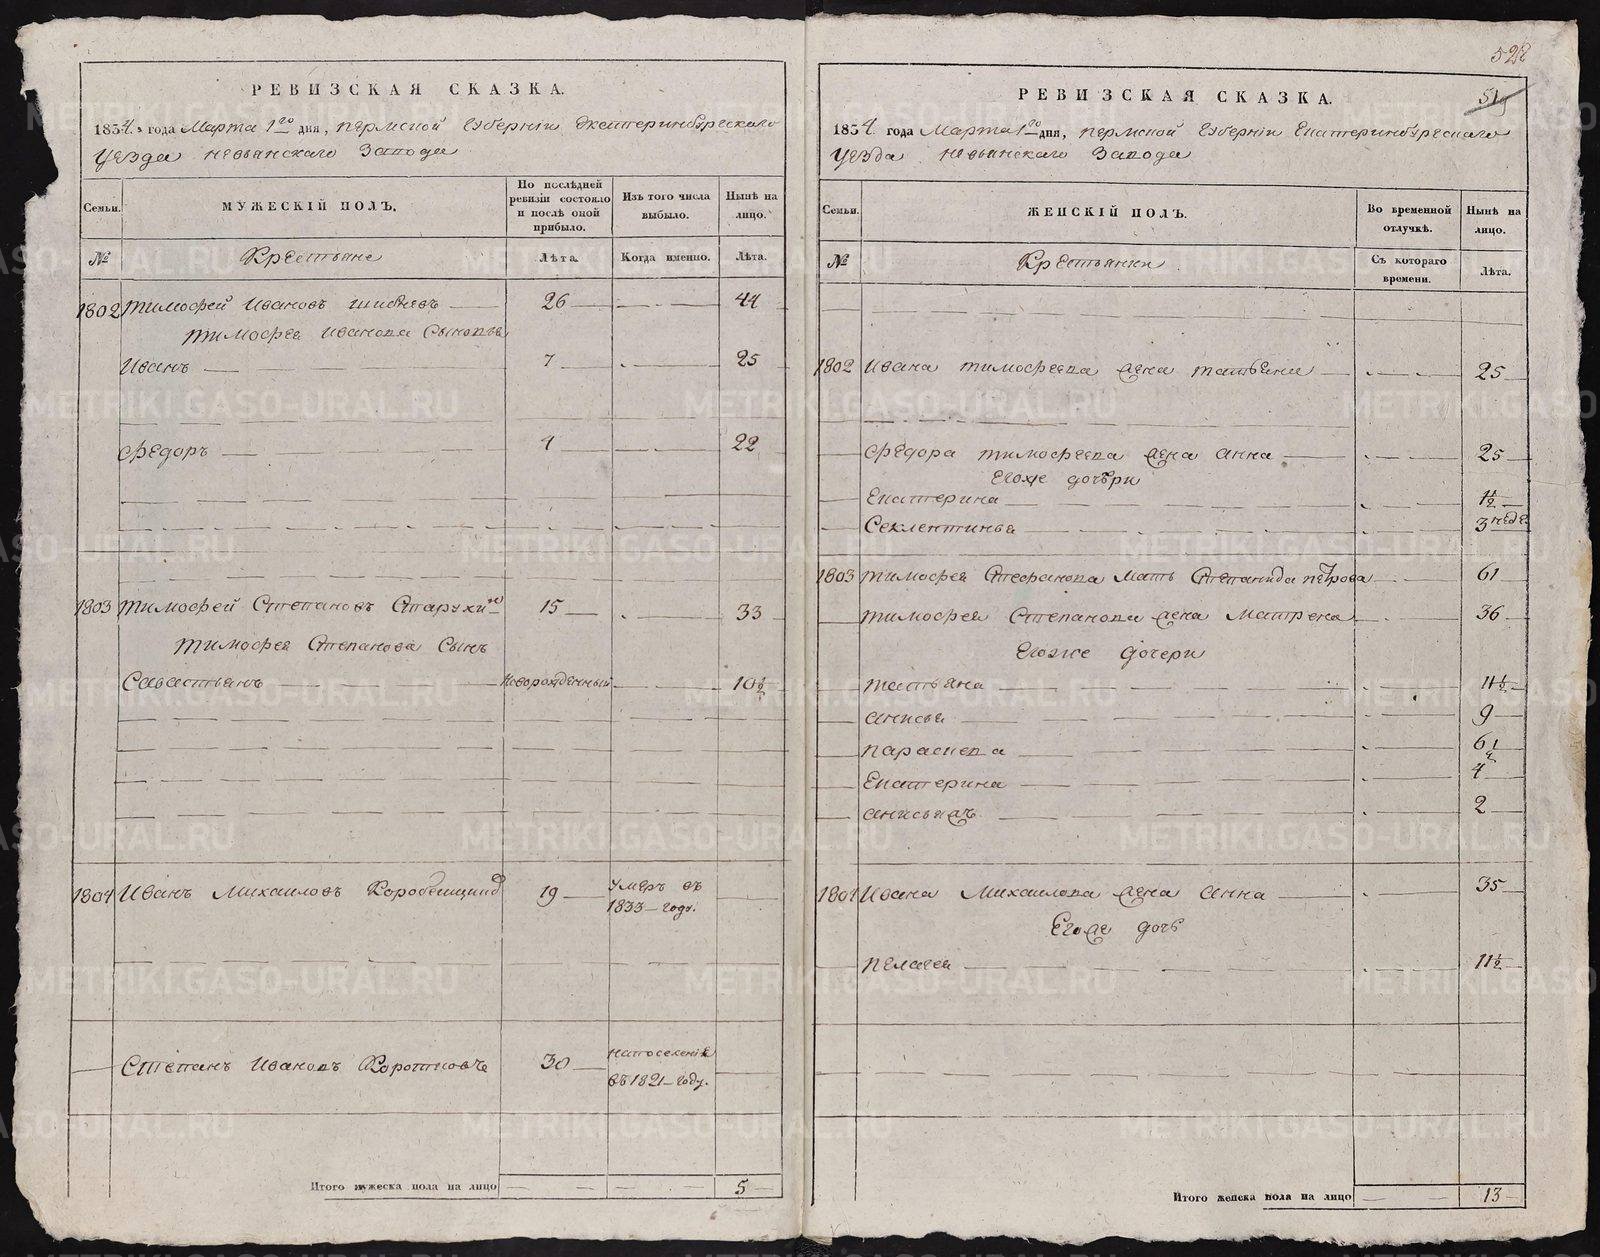 РЕВИЗСКАЯ СКАЗКА.
1834. года Марта 1го дня, Пермской Губернiи Экатеринбурскаго
Уезда Невьянскаго Завода
Семьи.
МУЖЕСКIЙ ПОЛЪ.
По послѣдней ревизiи состояло и послѣ оной прибыло.
Изъ того числа выбыло.
Нынѣ на лицо.
№
Крестьяне
Лѣта.
Когда именно.
Лѣта.
1802 Тимофей Ивановъ 26 44
Тимофея Иванова Сыновья
Иванъ 7 25
Федоръ 4 22
1803 Тимофей Степановъ Старухинъ 15 33
Тимофея Степанова Сынъ
Савастьянъ Новорожденный 10 1/2
1804 Иванъ Михаиловъ 19 Умеръ въ 1833 году.
Степанъ Ивановъ 30 Напоселенiе въ 1821 году.
Итого мужеска пола на лицо 5
528
519
РЕВИЗСКАЯ СКАЗКА.
1834. года Марта 1го дня, Пермской Губернiи Екатеринбурскаго
Уезда Невьянскаго Завода
Семьи.
ЖЕНСКIЙ ПОЛЪ.
Во временной отлучкѣ.
Нынѣ на лицо.
№
Крестьянки
Съ котораго времени.
Лѣта.
1802 Ивана Тимофеева жена Татьяна 25
Федора Тимофеева жена Анна 25
Егоже дочери
Екатерина 1 1/2
Секлентинья 3 неде
1803 Тимофея Стефанова Мать Степанида Петрова 61
Тимофея Степанова жена Матрена 36
Егоже дочери
Татьяна 11 1/2
Анисья 9
Параскева 6 1/2
Екатерина 4
2
1804 Ивана Михаилова жена Анна 35
Егоже дочь
Пелагея 11 1/2
Итого женска пола на лицо 13
METRIKI.GASO-URAL.RU